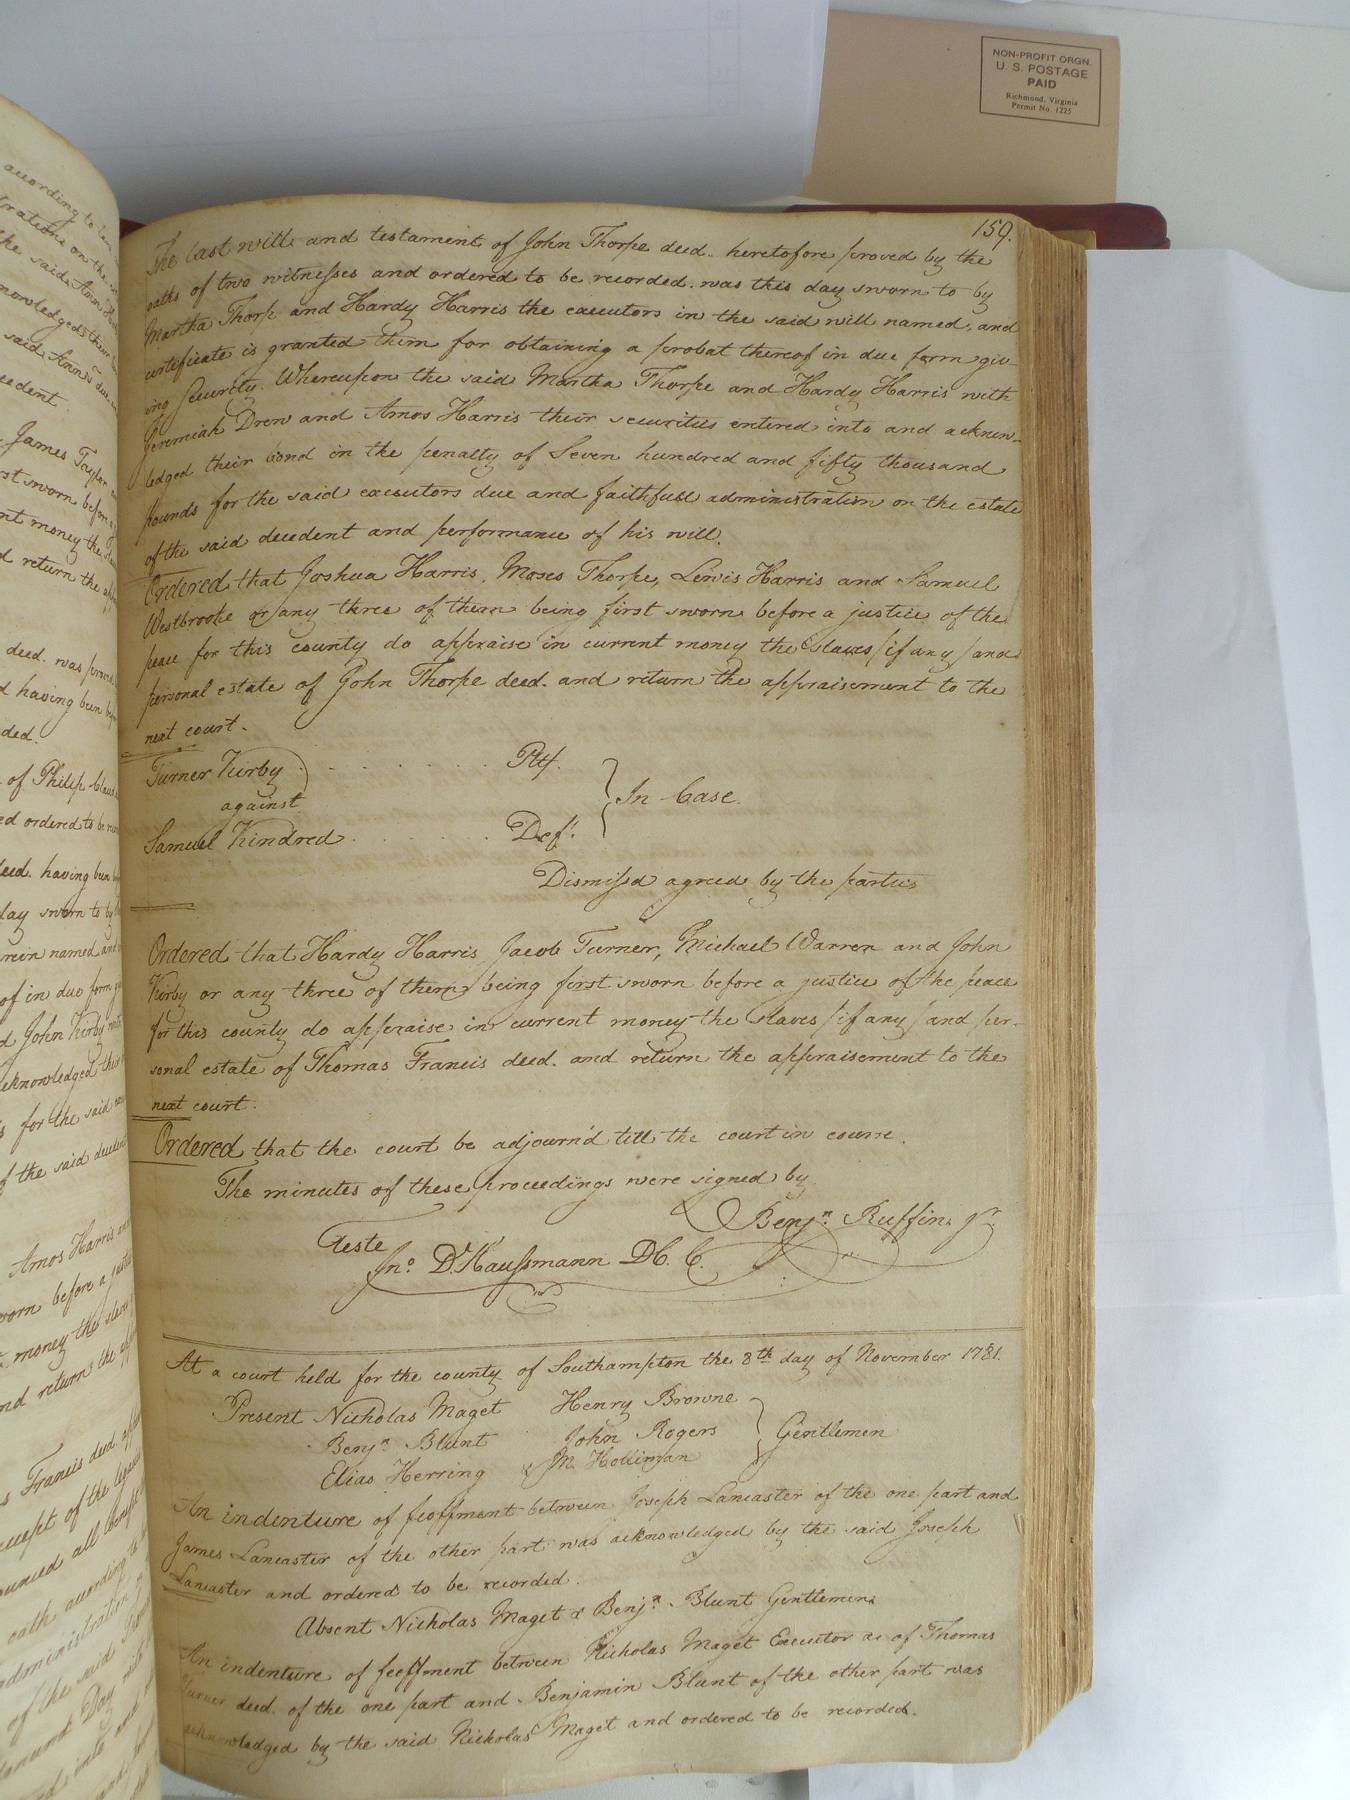 NON-PROFIT ORGN.
U. S. POSTAGE
PAID
Richmond, Virginia
Permit No. 1225
according to
the said Ann
knowledged their
said Ann's due
decedent
James Taylor
first sworn before
current money the
and return the
deed. was proved
having been
of Philip
ordered to be
deed. having been
day sworn to by
therein named and
of in due form
John Kirby
acknowledged their
for the said
of the said decedent
Amos Harris
sworn before a
money the slaves
and return the
Francis deed
all
oath according
administration
of the said
into and
159.
The last will and testament of John Thorpe deed. heretofore proved by the
oaths of two witnesses and ordered to be recorded. was this day sworn to by
Martha Thorp and Hardy Harris the executors in the said will named, and
certificate is granted them for obtaining a probat thereof in due form giv-
ing security. Whereupon the said Martha Thorpe and Hardy Harris with
Jeremiah Drew and Amos Harris their securities entered into and acknow-
ledged their bond in the penalty of Seven hundred and fifty thousand
pounds for the said executors due and faithfull administration on the estate
of the said decedent and performance of his will.
Ordered that Joshua Harris, Moses Thorpe, Lewis Harris and Samuel
Westbrooke or any three of them being first sworn before a justice of the
peace for this county do appraise in current money the slaves /if any/ and
personal estate of John Thorpe deed. and return the appraisement to the
next court.
Turner Kirby . . . . . . . Plt.
against
In Case.
Samuel Kindred . . . . . . Deft.
Dismissd agreed by the parties
Ordered that Hardy Harris, Jacob Turner, Michael Warren and John
Kirby or any three of them being first sworn before a justice of the peace
for this county do appraise in current money the slaves /if any/ and per-
sonal estate of Thomas Francis deed. and return the appraisement to the
next court.
Ordered that the court be adjourn'd till the court in course.
The minutes of these proceedings were signed by
Benjn. Ruffin Jr.
Teste
Jno. D. Haussmann D.C.C.
At a court held for the county of Southampton the 8th day of November 1781.
Present Nicholas Maget Henry Browne
Benja. Blunt John Rogers Gentlemen
Elias Herring & M. Holliman
An indenture of feoffment between Joseph Lancaster of the one part and
James Lancaster of the other part was acknowledged by the said Joseph
Lancaster and ordered to be recorded.
Absent Nicholas Maget & Benja. Blunt Gentlemen
An indenture of feoffment between Nicholas Maget Executor &c of Thomas
Turner deed. of the one part and Benjamin Blunt of the other part was
acknowledged by the said Nicholas Maget and ordered to be recorded.